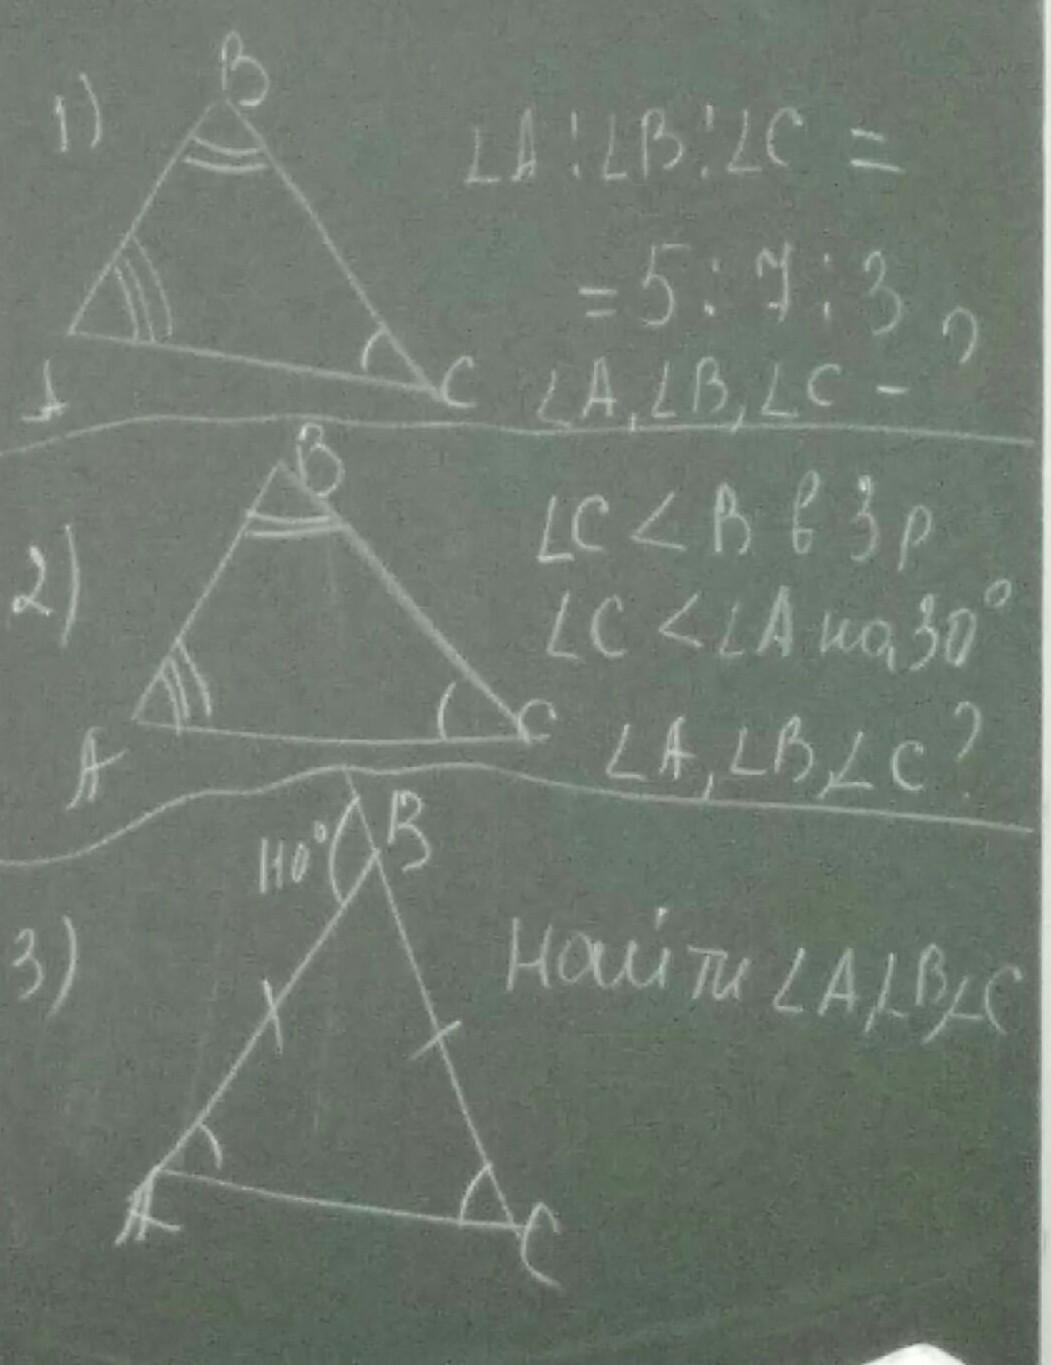 1)
B
A
C
∠A:∠B:∠C =
= 5 : 7 : 3
∠A,∠B,∠C - ?
2)
B
A
C
∠C < B в 3 р
∠C < ∠A на 30°
∠A,∠B,∠C ?
3)
110°
B
A
C
Найти ∠A,∠B,∠C